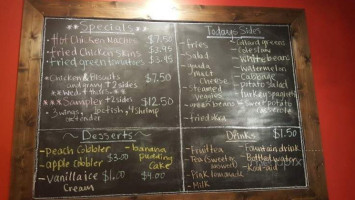 **Specials**
• Hot Chicken Nachos $7.50
• Fried Chicken Skins $3.95
• Fried green tomatoes $3.95
* Chicken & Biscuits $7.50
and gravy + 2 sides
*** Sampler + 2 sides $12.50
3 wings, 1pc fish, 4 shrimp
Desserts
- peach cobbler
- apple cobbler $3.00
- Vanilla ice $1.00
Cream
- banana
pudding
cake
$4.00
Todays Sides
- fries
- Salad
- mac n
Cheese
- Steamed
- green beans
- fried okra
- collard greens
- coleslaw
- white beans
- watermelon
- Cabbage
- potato Salad
- turkey spaghetti
- Sweet potato
Drinks $1.50
- Fruit tea
- Tea (sweet or
unsweet)
- Pink lemonade
- Milk
- Fountain drink
- Bottled water
- Kool-aid